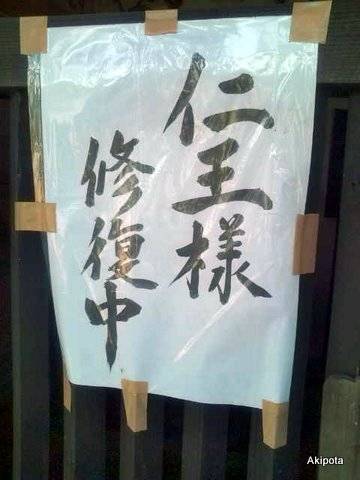 仁王様
修復中
Akipota